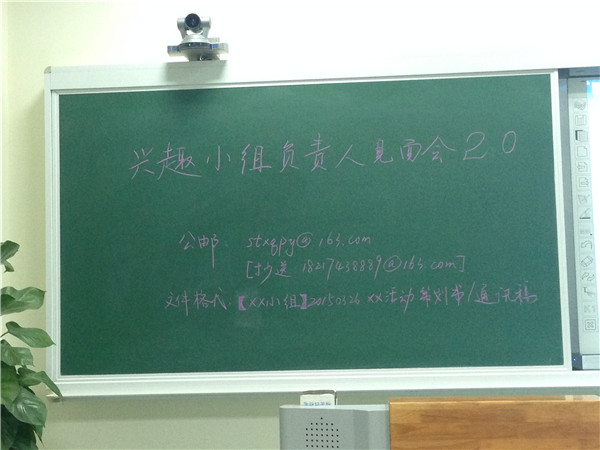 兴趣小组负责人见面会2.0
公邮: stxqpy@163.com
[抄送 18217438889@163.com]
文件格式:【XX小组】20150326 XX活动策划书/通讯稿